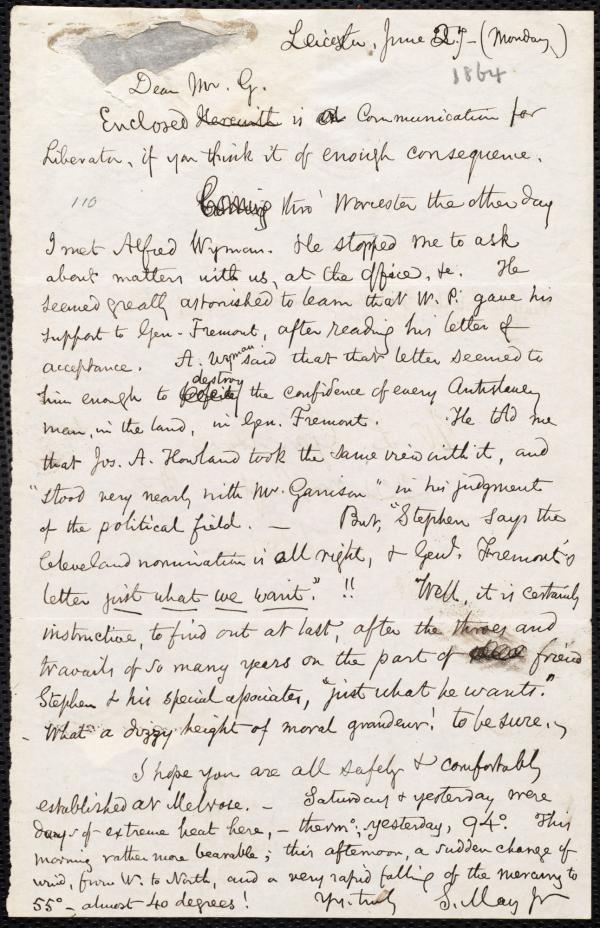 Leicester, June 27 - (Monday)
1864
Dear Mr. G.
Enclosed Herewith is a Communication for
Liberator, if you think it of enough consequence.
110
Coming thro' Worcester the other day
I met Alfred Wyman. He stopped me to ask
about matters with us, at the office, &c. He
seemed greatly astonished to learn that W. P. gave his
support to Gen. Fremont, after reading his letter of
acceptance. A. Wyman said that that letter seemed to
him enough to destroy the confidence of every Antislavery
man, in the land, in Gen. Fremont. He told me
that Jos. A. Howland took the same view with it, and
"stood very nearly with Mr. Garrison" in his judgment
of the political field. — But, "Stephen says the
Cleveland nomination is all right, & Genl. Fremont's
letter just what we want." !! Well, it is certainly
instructive, to find out at last, after the throes and
travails of so many years on the part of friend
Stephen & his special associates, "just what he wants."
What a dizzy height of moral grandeur! to be sure.
I hope you are all safely & comfortably
established at Melrose. — Saturday & yesterday were
days of extreme heat here, — thermr. yesterday, 94°. This
morning rather more bearable; this afternoon, a sudden change of
wind, from W. to North, and a very rapid falling of the mercury to
55° — almost 40 degrees! Yrs. truly S. May Jr